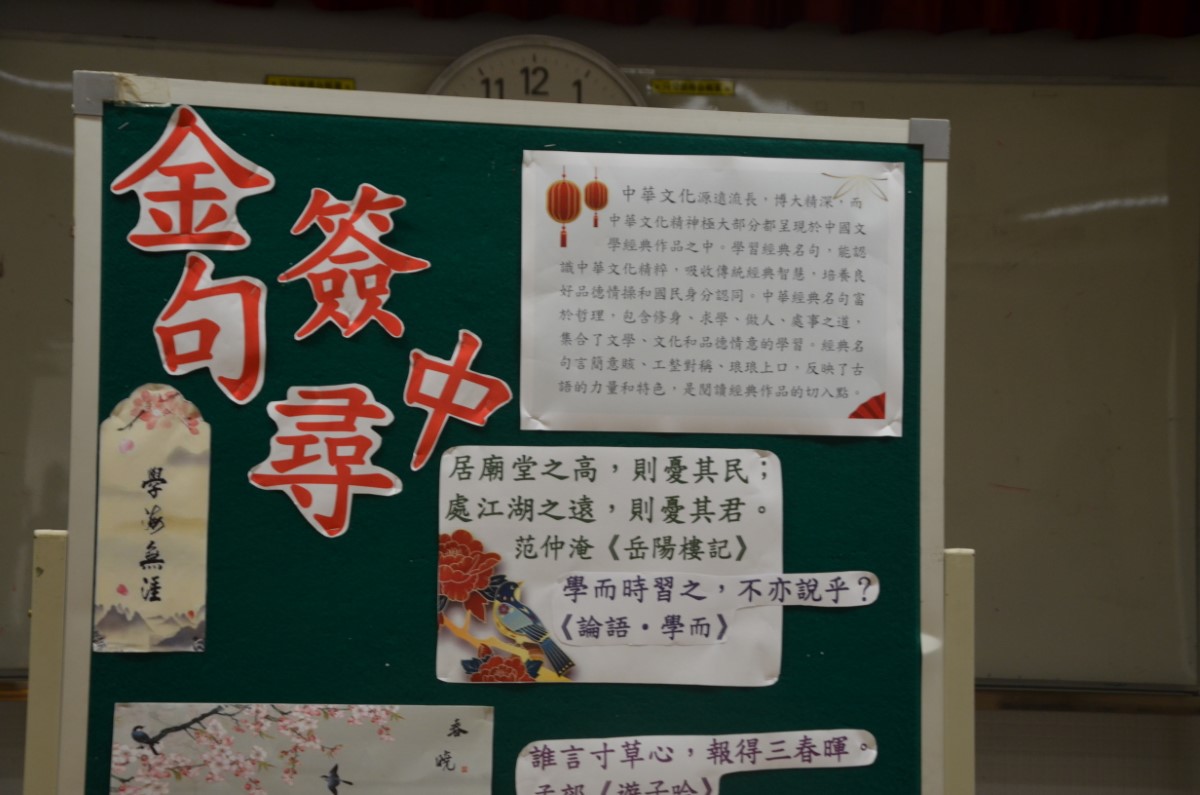 11 12 1
金句
簽中尋
中華文化源遠流長，博大精深，而
中華文化精神極大部分都呈現於中國文
學經典作品之中。學習經典名句，能認
識中華文化精粹，吸收傳統經典智慧，培養良
好品德情操和國民身分認同。中華經典名句富
於哲理，包含修身、求學、做人、處事之道，
集合了文學、文化和品德情意的學習。經典名
句言簡意賅、工整對稱、琅琅上口，反映了古
語的力量和特色，是閱讀經典作品的切入點。
學海無涯
居廟堂之高，則憂其民；
處江湖之遠，則憂其君。
范仲淹《岳陽樓記》
學而時習之，不亦說乎？
《論語·學而》
春曉
誰言寸草心，報得三春暉。
孟郊《遊子吟》